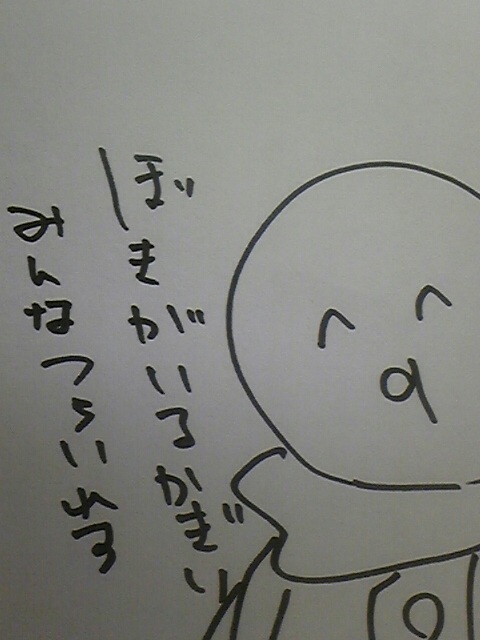 ぼきがいるかぎり
みんなつらいれす